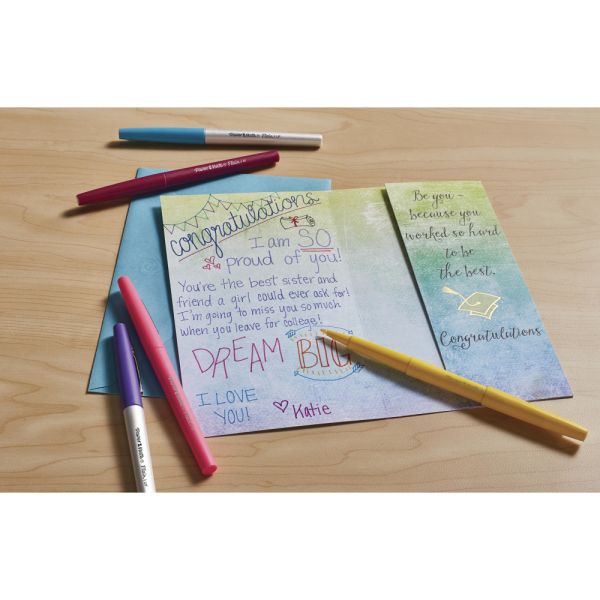 Paper Mate Flair
Paper Mate Flair
congratulations
I am SO
proud of you!
You're the best sister and
friend a girl could ever ask for!
I'm going to miss you so much
when you leave for college!
DREAM BIG
I LOVE
YOU!
Katie
Be you -
because you
worked so hard
to be
the best.
Congratulations
Paper Mate Flair